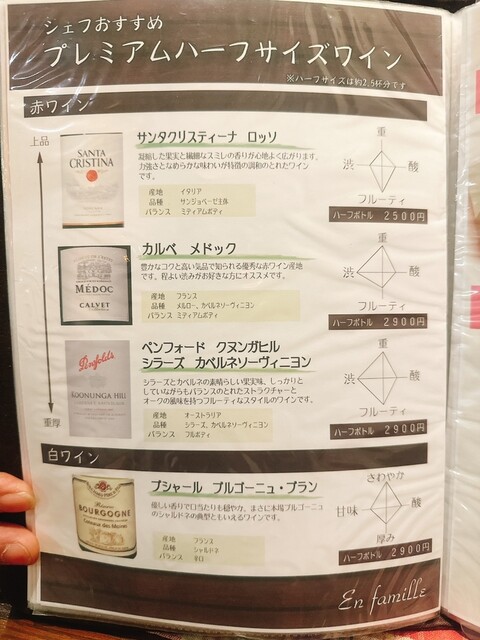 シェフおすすめ
プレミアムハーフサイズワイン
※ハーフサイズは約2.5杯分です
赤ワイン
上品
重厚
SANTA
CRISTINA
サンタクリスティーナ ロッソ
凝縮した果実と繊細なスミレの香りが心地よく広がります。
力強さとなめらかな味わいが特徴の調和のとれたワイン
です。
産地 イタリア
品種 サンジョベーゼ主体
バランス ミディアムボディ
重
渋
酸
フルーティ
ハーフボトル 2500円
MÉDOC
CALVET
カルベ メドック
豊かなコクと高い気品で知られる優秀な赤ワイン産地
です。程よい渋みがお好きな方にオススメです。
産地 フランス
品種 メルロー、カベルネソーヴィニヨン
バランス ミディアムボディ
重
渋
酸
フルーティ
ハーフボトル 2900円
Penfolds
KOONUNGA HILL
ペンフォード クヌンガヒル
シラーズ カベルネソーヴィニヨン
シラーズとカベルネの素晴らしい果実味、しっかりと
していながらもバランスのとれたストラクチャーと
オークの風味を持つフルーティなスタイルのワインです。
産地 オーストラリア
品種 シラーズ、カベルネソーヴィニヨン
バランス フルボディ
重
渋
酸
フルーティ
ハーフボトル 2900円
白ワイン
BOURGOGNE
ブシャール ブルゴーニュ・ブラン
優しい香りで口当たりも穏やか。まさに本場ブルゴーニュ
のシャルドネの典型ともいえるワインです。
産地 フランス
品種 シャルドネ
バランス 辛口
さわやか
甘味
酸
厚み
ハーフボトル 2900円
En famille